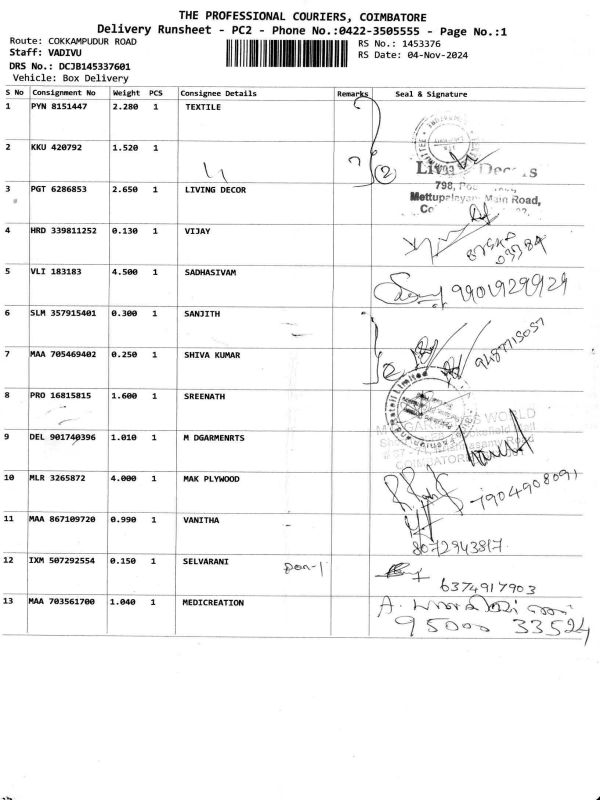 THE PROFESSIONAL COURIERS, COIMBATORE
Delivery Runsheet - PC2 - Phone No.:0422-3505555 - Page No.:1
Route: COKKAMPUDUR ROAD
Staff: VADIVU
DRS No.: DCJB145337601
Vehicle: Box Delivery
RS No.: 1453376
RS Date: 04-Nov-2024
S No Consignment No Weight PCS Consignee Details Remarks Seal & Signature
1 PYN 8151447 2.280 1 TEXTILE
2 KKU 420792 1.520 1
2
3 PGT 6286853 2.650 1 LIVING DECOR
798,
Mettupalayam Main Road,
4 HRD 339811252 0.130 1 VIJAY
5 VLI 183183 4.500 1 SADHASIVAM
9901929929
6 SLM 357915401 0.300 1 SANJITH
9487715057
7 MAA 705469402 0.250 1 SHIVA KUMAR
8 PRO 16815815 1.600 1 SREENATH
WORLD
9 DEL 901740396 1.010 1 M DGARMENRTS
COIMBATORE
10 MLR 3265872 4.000 1 MAK PLYWOOD
7904908091
11 MAA 867109720 0.990 1 VANITHA
8072943817.
12 IXM 507292554 0.150 1 SELVARANI
6374917903
13 MAA 703561700 1.040 1 MEDICREATION
95000 33524